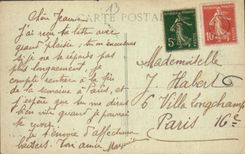 13
CARTE POSTALE
Chère Jeanne
J'ai reçu ta lettre avec
grand plaisir, tu m'excuseras
si je ne réponds pas
plus longuement, je
compte rentrer à la fin
de la semaine à Paris, et
j'espère que tu me diras
bien vite quand je pourrai
te
Je t'envoie d'affectueux
baisers. Ton amie
5
10
Mademoiselle
J. Habert
6 Villa Longchamp
Paris 16e